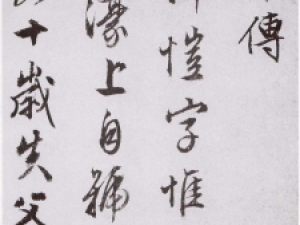 傳
愷字惟
濠上自號
十歲失父